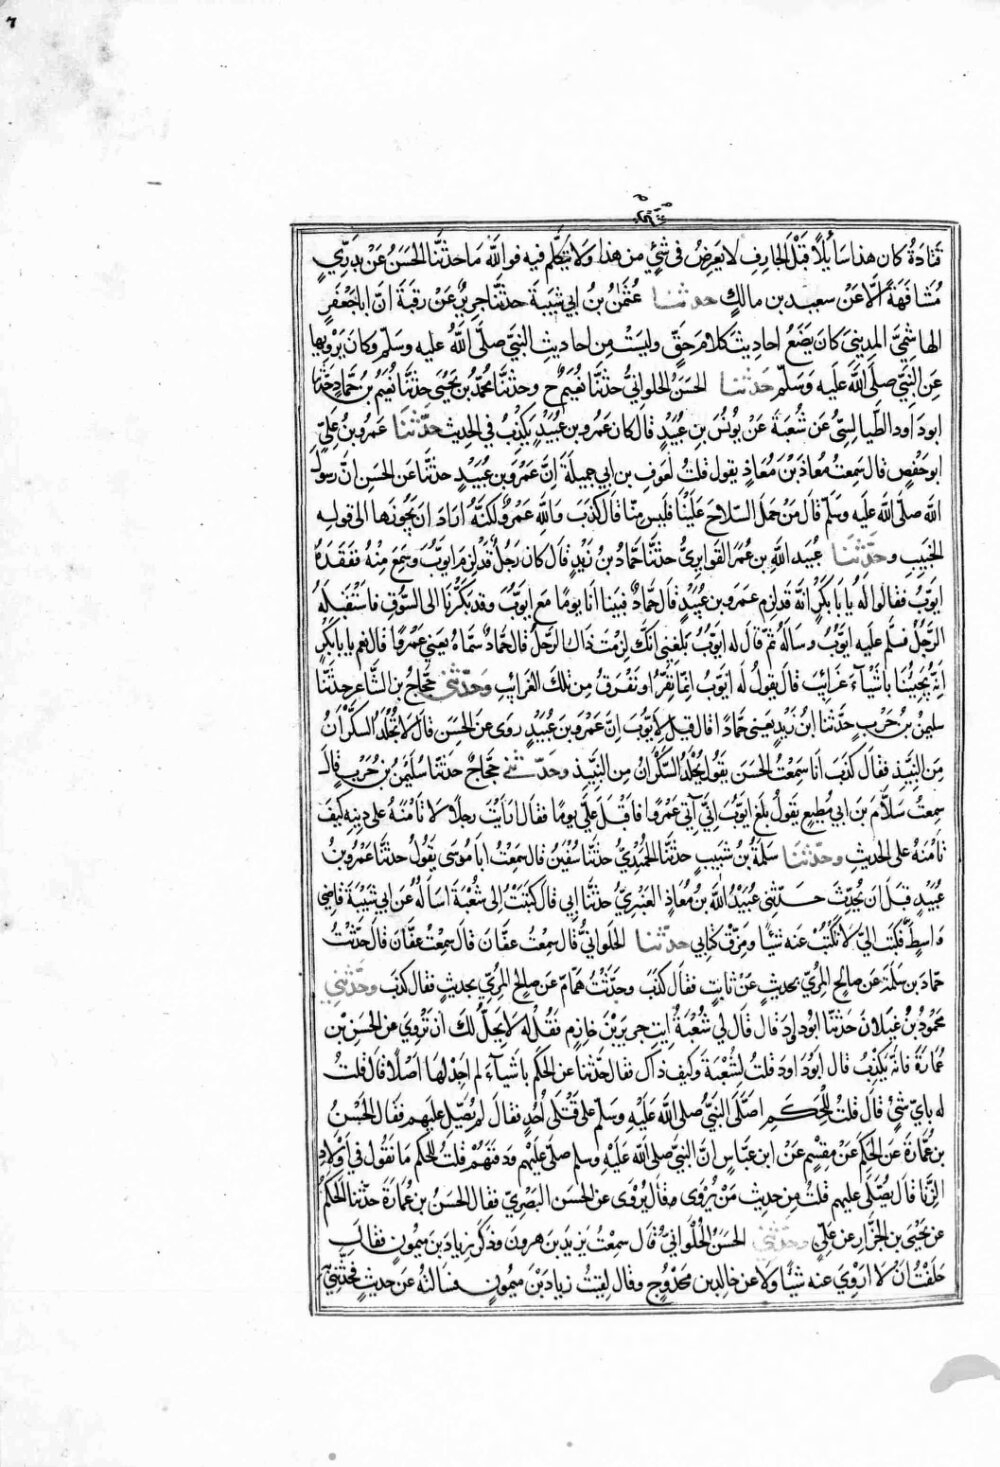 ٦
قَتَادَةُ كان هذا سَائِلًا قَبْلَ الجارِفِ لا يَعرِضُ فى شَئٍ من هذا ولَا يَتَكلَّم فيه فو اللّٰه مَا حدثنَا الحَسَنُ عَنْ بَدْرِيٍّ
مُشَافَهَةً اِلَّا عَنْ سعيد بن مالكٍ حدثنا عُثمٰنُ بْنُ ابي شَيْبَةَ حدثنَا جريرٌ عَنْ رقبَةَ انّ اباجَعْفَرٍ
الهاشميَّ المدِينيَ كانَ يَضَعُ احادِيثَ كلامَ حَقٍّ وليسَتْ مِن احاديثِ النبيّ صلّى اللّٰهُ عليه وسَلّم وكانَ يَرْوِيها
عَنِ النَّبِيّ صلى اللّٰه عَلَيه وَسَلّمَ حَدثنا الحَسَنُ الحلوانيُّ حدثنَا نُعَيمٌ ح وحدثنَا محمّد بن يَحْيٰى حدثنا نُعَيمُ بْنُ حَمَّادٍ حدثنا
ابودَاود الطَّيالسِيُّ عن شُعبَةَ عَنْ يُونُسَ بنِ عُبَيْدٍ قال كان عَمْرُو بن عبَيْدٍ يَكذِبُ في الحديث حَدَّثَنَا عَمْرُو بنُ عَليٍّ
ابوحَفْصٍ قال سَمِعتُ مُعاذَ بْنَ مُعاذٍ يقول قلتُ لِعَوفِ بن ابي جميلَةَ اِنَّ عَمْرَو بن عُبَيدٍ حدثنَا عَن الحسَنِ انّ رسولَ
اللّٰه صلى اللّٰه عَلَيه وسَلّمَ قالَ مَنْ حَمَلَ السّلاحَ عَلَيْنَا فليس مِنّا قالَ كَذَبَ وَاللّٰه عَمْرٌو ولٰكنّهُ ارادَ ان يَحُوزَها الى قولِهِ
الخبِيثِ وحَدَّثنَا عبيد اللّٰهِ بن عُمَرَ القَوَاريريُّ حدثنَا حمّادُ بْنُ زَيْدٍ قالَ كان رَجُلٌ قَدْ لَزِمَ ايّوبَ وسَمِعَ مِنْهُ فَفَقَدَهُ
ايّوبُ فقالوا لَهُ يا بَا بَكْرٍ انّه قَد لزِم عَمرَو بن عُبَيدٍ قال حمّادٌ فبينا انَا يَومًا مَعَ ايّوبَ وقد بَكّرْنا الى السُّوقِ فاستَقْبَلَهُ
الرَّجُلُ فسلّم عَليه ايّوبُ وسَالَهُ ثمّ قالَ له ايّوبُ بَلَغَنِى انّكَ لزِمْتَ ذاكَ الرَّجلَ قال حمّادٌ سَمّاهُ يعنى عَمْرًا قال نعم يا بَا بَكْرٍ
اِنّهُ يُجِيئُنَا بأَشْيَآءَ غَرائِبَ قالَ يقُولُ له ايّوبُ انّما نَفِرُّ اَو نَفْرَقُ من تلكَ الغَرائِبِ وَحَدّثنى حَجّاجُ بن الشَّاعِرِ حدثنَا
سليمٰنُ بنُ حَرْبٍ حدّثنا ابنُ زيدٍ يَعنى حمّادًا قالَ قيلَ لِاَيّوبَ اِنّ عَمْرَو بنَ عُبَيْدٍ رَوٰى عن الحَسَنِ قالَ لَا يُجْلَدُ السَّكْرَانُ
مِنَ النَّبِيذِ فقالَ كذَبَ اَنا سَمِعْتُ الحَسَنَ يَقُولُ يُجْلَدُ السَّكْرَانُ مِن النَّبيذِ وحَدّثنى حَجّاجٌ حدثنَا سُلَيْمٰنُ بْنُ حَرْبٍ قالَ
سَمِعتُ سَلَّامَ بنَ ابي مُطيعٍ يَقُولُ بَلَغَ ايّوبَ اِنّي آتى عَمْرًا فاَقْبلَ عَلَيَّ يومًا فقالَ اَرَاَيْتَ رجلًا لا تَاْمَنُهُ عَلى دينِهِ كيفَ
تَاْمَنُهُ على الحديثِ وحَدّثنَا سَلمَةُ بْنُ شَبيبٍ حدثنَا الحُمَيْدِيُّ حدثنَا سُفيٰنُ قالَ سَمِعْتُ اَبَا مُوسٰى يَقُولُ حدثنَا عَمْرُو بْنُ
عُبَيْدٍ قبلَ اَنْ يُحْدِثَ حَدّثنِى عُبَيْدُ اللّٰهِ بْنُ مُعَاذٍ العَنْبَرِيُّ حدثنَا ابي قالَ كَتَبْتُ اِلى شُعْبَةَ اَسَالُهُ عَن ابي شَيْبَةَ قاضى
وَاسِطَ فكتبَ اِليَّ لَا تكْتُبْ عَنه شَيْئًا ومَزِّقْ كتَابي حدّثنا الحلوانيُّ قال سَمِعْتُ عفّانَ قال حَدّثْتُ
حمّادَ بن سَلَمَةَ عَن صالحٍ المُرّيِّ بحديثٍ عَنْ ثابتٍ فقالَ كَذَبَ وحَدّثْتُ هَمّامًا عن صَالحٍ المُرّيِّ بحديثٍ فقالَ كذَبَ وحَدّثنِي
محمُودُ بنُ غَيْلانَ حَدثَنَا ابُودَاودَ قالَ قَالَ لي شُعْبَةُ اِيتِ جريرَ بْنَ حَازِمٍ فَقُلْ له لَا يَحِلُّ لكَ اَنْ تَرْوِيَ عن الحَسَنِ بْنِ
عُمارَةَ فانّه يَكذِبُ قال ابُودَاودَ قلتُ لِشُعْبَةَ وكيف ذاكَ فقالَ حدّثنا عَنِ الحكَمِ باَشْيَآءَ لم اَجِدْ لها اَصْلًا قال قلتُ
له بايّ شَئٍ قالَ قلتُ لِلْحَكَمِ اَصَلَّى النّبيُّ صلى اللّٰهُ عَلَيْهِ وَسَلّم على قَتْلٰى اُحُدٍ فقالَ لم يُصَلِّ عليهم فقالَ الحَسَنُ
بْن عُمَارَةَ عَن الحَكَمِ عَنْ مِقْسَمٍ عَنْ ابنِ عَبّاسٍ انَّ النّبيّ صلى اللّٰهُ عَلَيْهِ وسلم صلى عَلَيْهم ودَفَنَهُمْ قلتُ لِلحكمِ مَا تَقُولُ فى اَوْلادِ
الزّنَا قالَ يُصَلَّى عليهم قلتُ مِن حديثِ مَنْ يُرْوٰى قالَ يُرْوٰى عن الحسَن البَصْرِيِّ فقالَ الحَسَنُ بن عُمَارَةَ حدّثنا الحَكمُ
عن يَحْيَى بن الجَزّارِ عن عَلِيٍّ وحَدّثنى الحَسَنُ الحُلْوَانيُّ قالَ سمِعتُ يَزِيدَ بن هرونَ وذكرَ زِيادَ بْنَ ميمُونٍ فقالَ
حَلَفْتُ اَنْ لَا اَرْوِيَ عنه شيئًا ولَا عن خالدِ بن مَحْدُوجٍ وقالَ لقيتُ زيادَ بْنَ ميمُونٍ فسالتُهُ عَنْ حديثٍ فحدّثنِى بِهِ